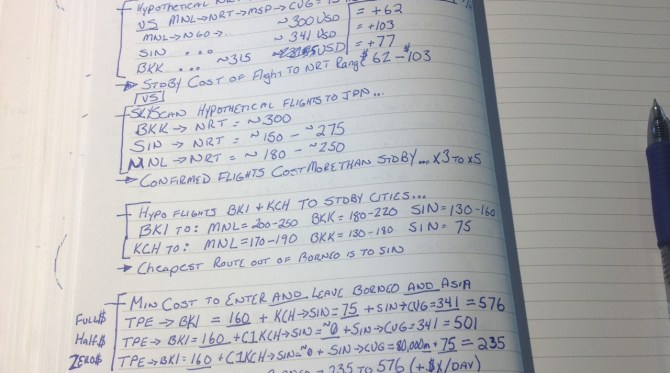 HYPOTHETICAL
VS MNL→NRT→MSP→CVG =
MNL→NGO→. ~300USD = +62
SIN ... ~341 USD = +103
BKK ... ~315 USD = +77
→ STDBY COST OF Flight TO NRT Range $62-$103
VS
SKYSCAN HYPOTHETICAL FLIGHTS TO JPN...
BKK → NRT = ~300
SIN → NRT = ~150 - ~275
MNL → NRT = ~180 - ~250
→ CONFIRMED FLIGHTS COST MORE THAN STDBY... x3 TO x5
HYPO FLIGHTS BKI + KCH TO STDBY CITIES...
BKI TO: MNL=200-250 BKK=180-220 SIN=130-160
KCH TO: MNL=170-190 BKK=130-180 SIN= 75
→ Cheapest ROUTE OUT OF BORNEO IS TO SIN
MIN COST TO ENTER AND LEAVE BORNEO AND ASIA
FULL$ TPE→BKI = 160 + KCH→SIN=75 + SIN→CVG=341 = 576
Half$ TPE→BKI=160 +C1KCH→SIN=~0 +SIN→CVG=341 = 501
ZERO$ TPE→BKI=160 +C1KCH→SIN=~0 + SIN→CVG=80,000m+75 = 235
= 235 TO 576 (+$X/DAY)